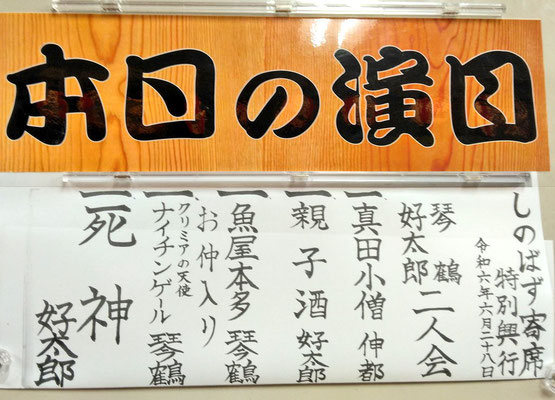 本日の演目
しのばず寄席
特別興行
令和六年六月二十八日
琴鶴
好太郎
二人会
一真田小僧 伸都
一親子酒 好太郎
一魚屋本多 琴鶴
お仲入り
一クリミアの天使
ナイチンゲール 琴鶴
一死神 好太郎